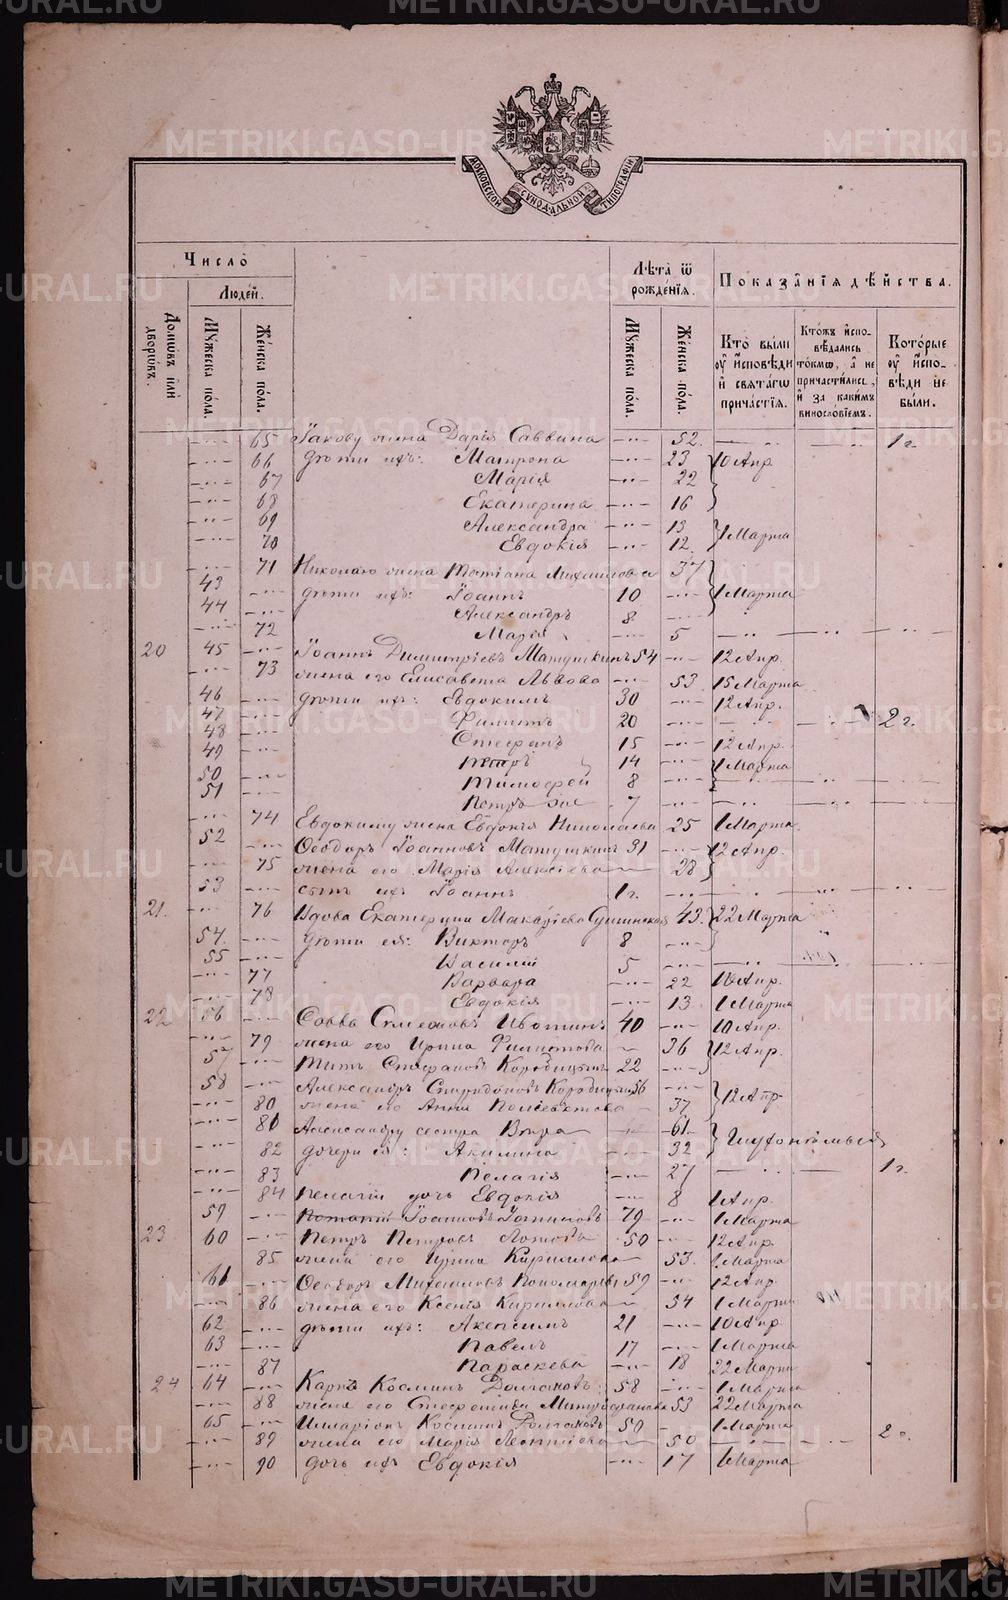 МОСКОВСКОЙ СУНОДАЛЬНОЙ ТИПОГРАФІИ
Число
Людей.
Домωвъ или дворωвъ.
Мужеска пола.
Женска пола.
Лѣта ѿ рожденія.
Мужеска пола.
Женска пола.
Показанія дѣйства.
Кто были оу исповѣди и святагω причастія.
Ктожъ исповѣдались токмω, а не причастились, и за какимъ винословіемъ.
Которые оу исповѣди не были.
65 Іакову жена Дарія Саввина 52 1 г.
66 дѣти ихъ: Матрона 23 10 Апр
67 Марія 22
68 Екатерина 16
69 Александра 13
70 Евдокія 12 1 Марта
71 Николаю жена Татіана Михаилова 37
43 дѣти ихъ: Іоаннъ 10 1 Марта
44 Александръ 8
72 Марія 5
20 45 Іоаннъ Димитріевъ Матушкинъ 54 12 Апр.
73 жена его Елисавета Львова 53 15 Марта
46 дѣти ихъ: Евдокимъ 30 12 Апр.
47 Филиппъ 20 2 г.
48 Стефанъ 15 12 Апр.
49 Петръ 14 1 Марта
50 Тимофей 8
51 Петръ же 7
74 Евдокиму жена Евдокія Николаева 25 1 Марта
52 Ѳеодоръ Іоанновъ Матушкинъ 31 12 Апр.
75 жена его Марія Алексіева 28
53 сынъ ихъ Іоаннъ 1 г.
21. 76 Вдова Екатерина Макаріева 43 22 Марта
54 дѣти ея: Викторъ 8
55 Василій 5
77 Варвара 22 10 Апр.
78 Евдокія 13 1 Марта
22 56 Савва Симеоновъ 40 10 Апр.
79 жена его Ирина Филиппова 36 12 Апр.
57 Титъ Стефановъ 22
58 Александръ Спиридоновъ 56
80 жена его Анна 37 12 Апр
81 Александру сестра Вѣра 61
82 дочери ея: Акилина 32
83 Пелагія 27 1 г.
84 Пелагіи дочь Евдокія 8 1 Апр.
59 Іоанновъ 79 1 Марта
23 60 Петръ Петровъ 50 12 Апр.
85 жена его Ирина Кириллова 53. 1 Марта
61 Ѳеодоръ Михаиловъ Пономаревъ 59 12 Апр
86 жена его Ксенія Кириллова 54 1 Марта
62 дѣти ихъ: 21 10 Апр.
63 Павелъ 17 1 Марта
87 Параскева 18 22 Марта
24 64 Карпъ Косминъ Долгановъ 58 1 Марта
88 жена его Митрофанова 53 22 Марта
65 Илларіонъ Косминъ Долгановъ 50 1 Марта
89 жена его Марія Леонтіева 50 2 г.
90 дочь ихъ Евдокія 17 1 Марта
METRIKI.GASO-URAL.RU